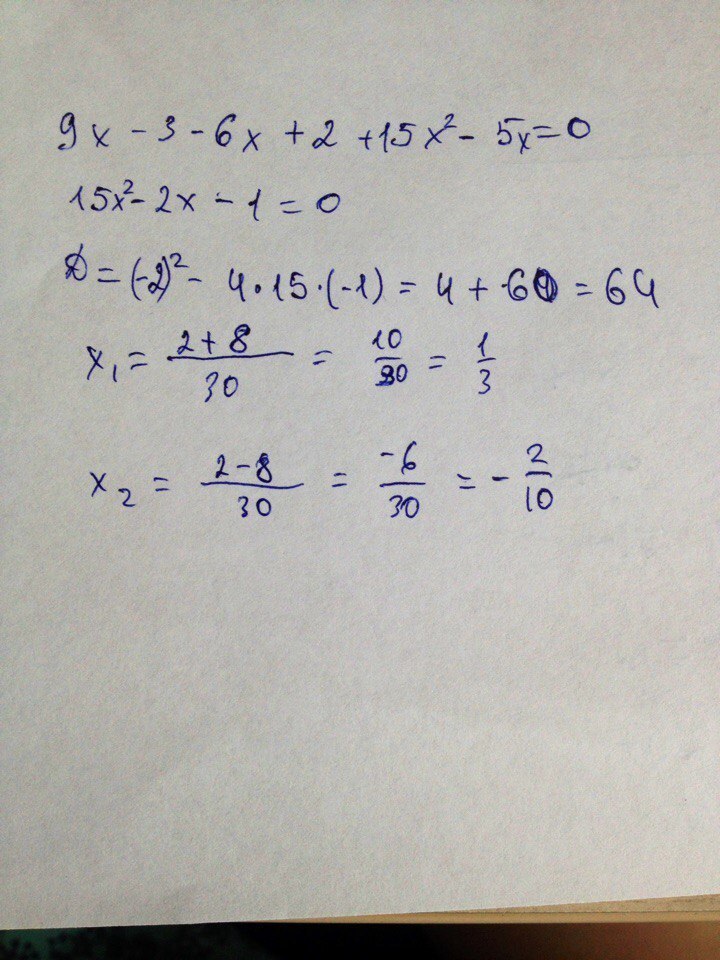 9x - 3 - 6x + 2 + 15x² - 5x = 0
15x² - 2x - 1 = 0
D = (-2)² - 4·15·(-1) = 4 + 60 = 64
x₁ = (2+8)/30 = 10/30 = 1/3
x₂ = (2-8)/30 = -6/30 = -2/10